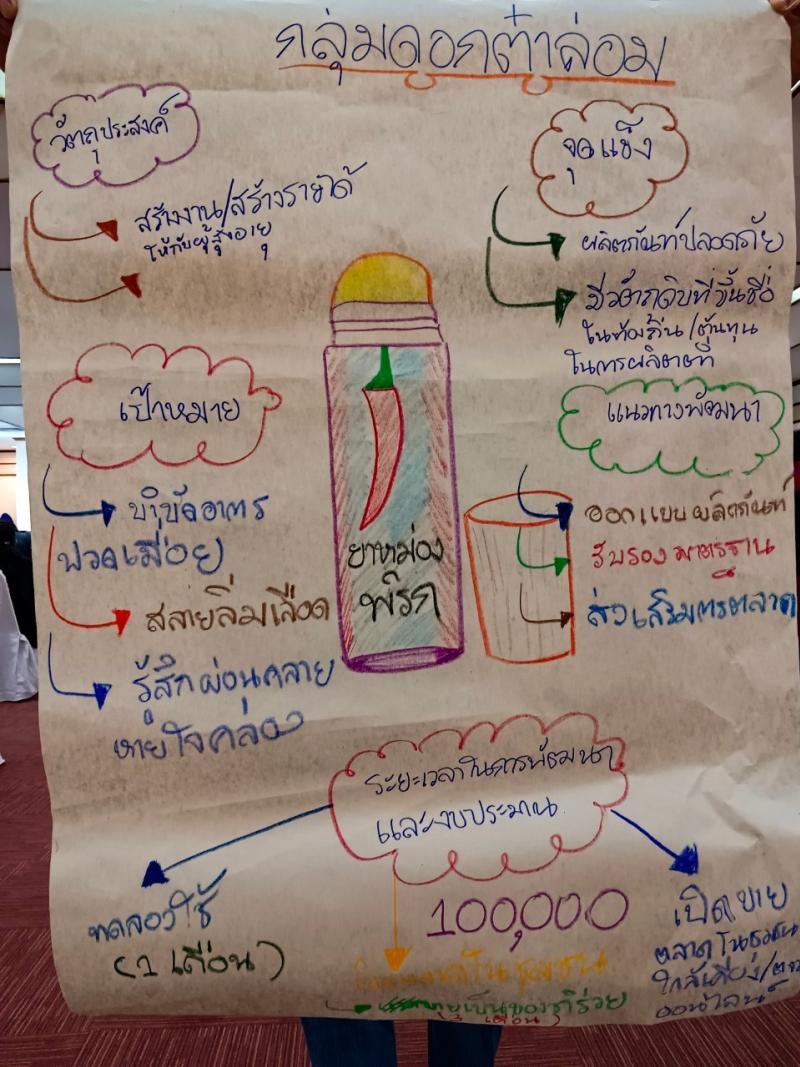 กลุ่มดอกต้าล่อม
วัตถุประสงค์
สร้างงาน/สร้างรายได้
ให้กับผู้สูงอายุ
จุดแข็ง
ผลิตภัณฑ์ปลอดภัย
มีวัตถุดิบที่ขึ้นชื่อ
ในท้องถิ่น/ต้นทุน
ในการผลิต
เป้าหมาย
บำบัดอาการ
ปวดเมื่อย
สลายลิ่มเลือด
รู้สึกผ่อนคลาย
หายใจคล่อง
ยาหม่อง
พริก
แนวทางพัฒนา
ออกแบบผลิตภัณฑ์
รับรองมาตรฐาน
ส่งเสริมการตลาด
ระยะเวลาในการพัฒนา
และงบประมาน
ทดลองใช้
(1 เดือน)
100,000
ในชุมชน
เปิดขาย
ตลาดในชุมชน
ใกล้เคียง/
ออนไลน์